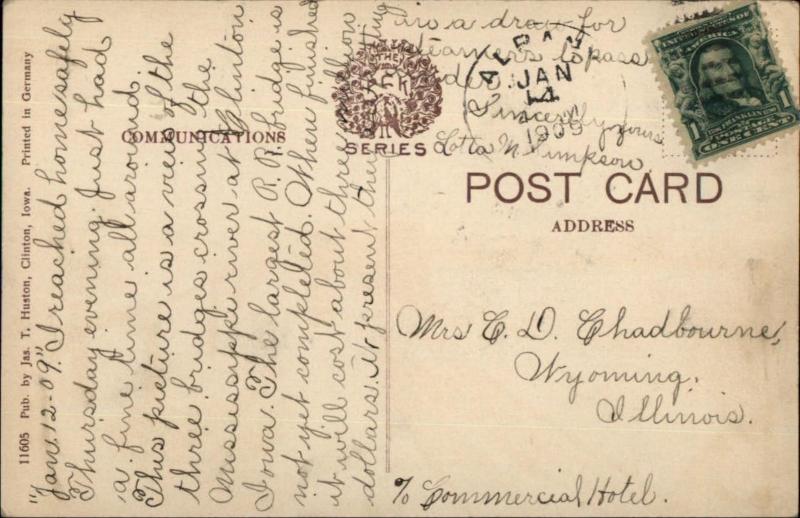 11605 Pub. by Jas. T. Huston, Clinton, Iowa. Printed in Germany
COMMUNICATIONS
THE
II
SERIES
POST CARD
ADDRESS
"Jan. 12-09." I reached home safely
Thursday evening. Just had
a fine time all around.
This picture is a view of the
three bridges crossing the
Mississippi river at Clinton
Iowa. The largest R.R. bridge is
not yet completed. When finished
it will cost about three million
dollars. At present they are putting
in a draw for
steamers to pass
under.
Sincerely yours
Lotta N. Simkson
ALBANY
JAN
14
1909
UNITED STATES OF AMERICA
1
1
FRANKLIN
ONE CENT
Mrs C. D. Chadbourne,
Wyoming,
Illinois.
% Commercial Hotel.